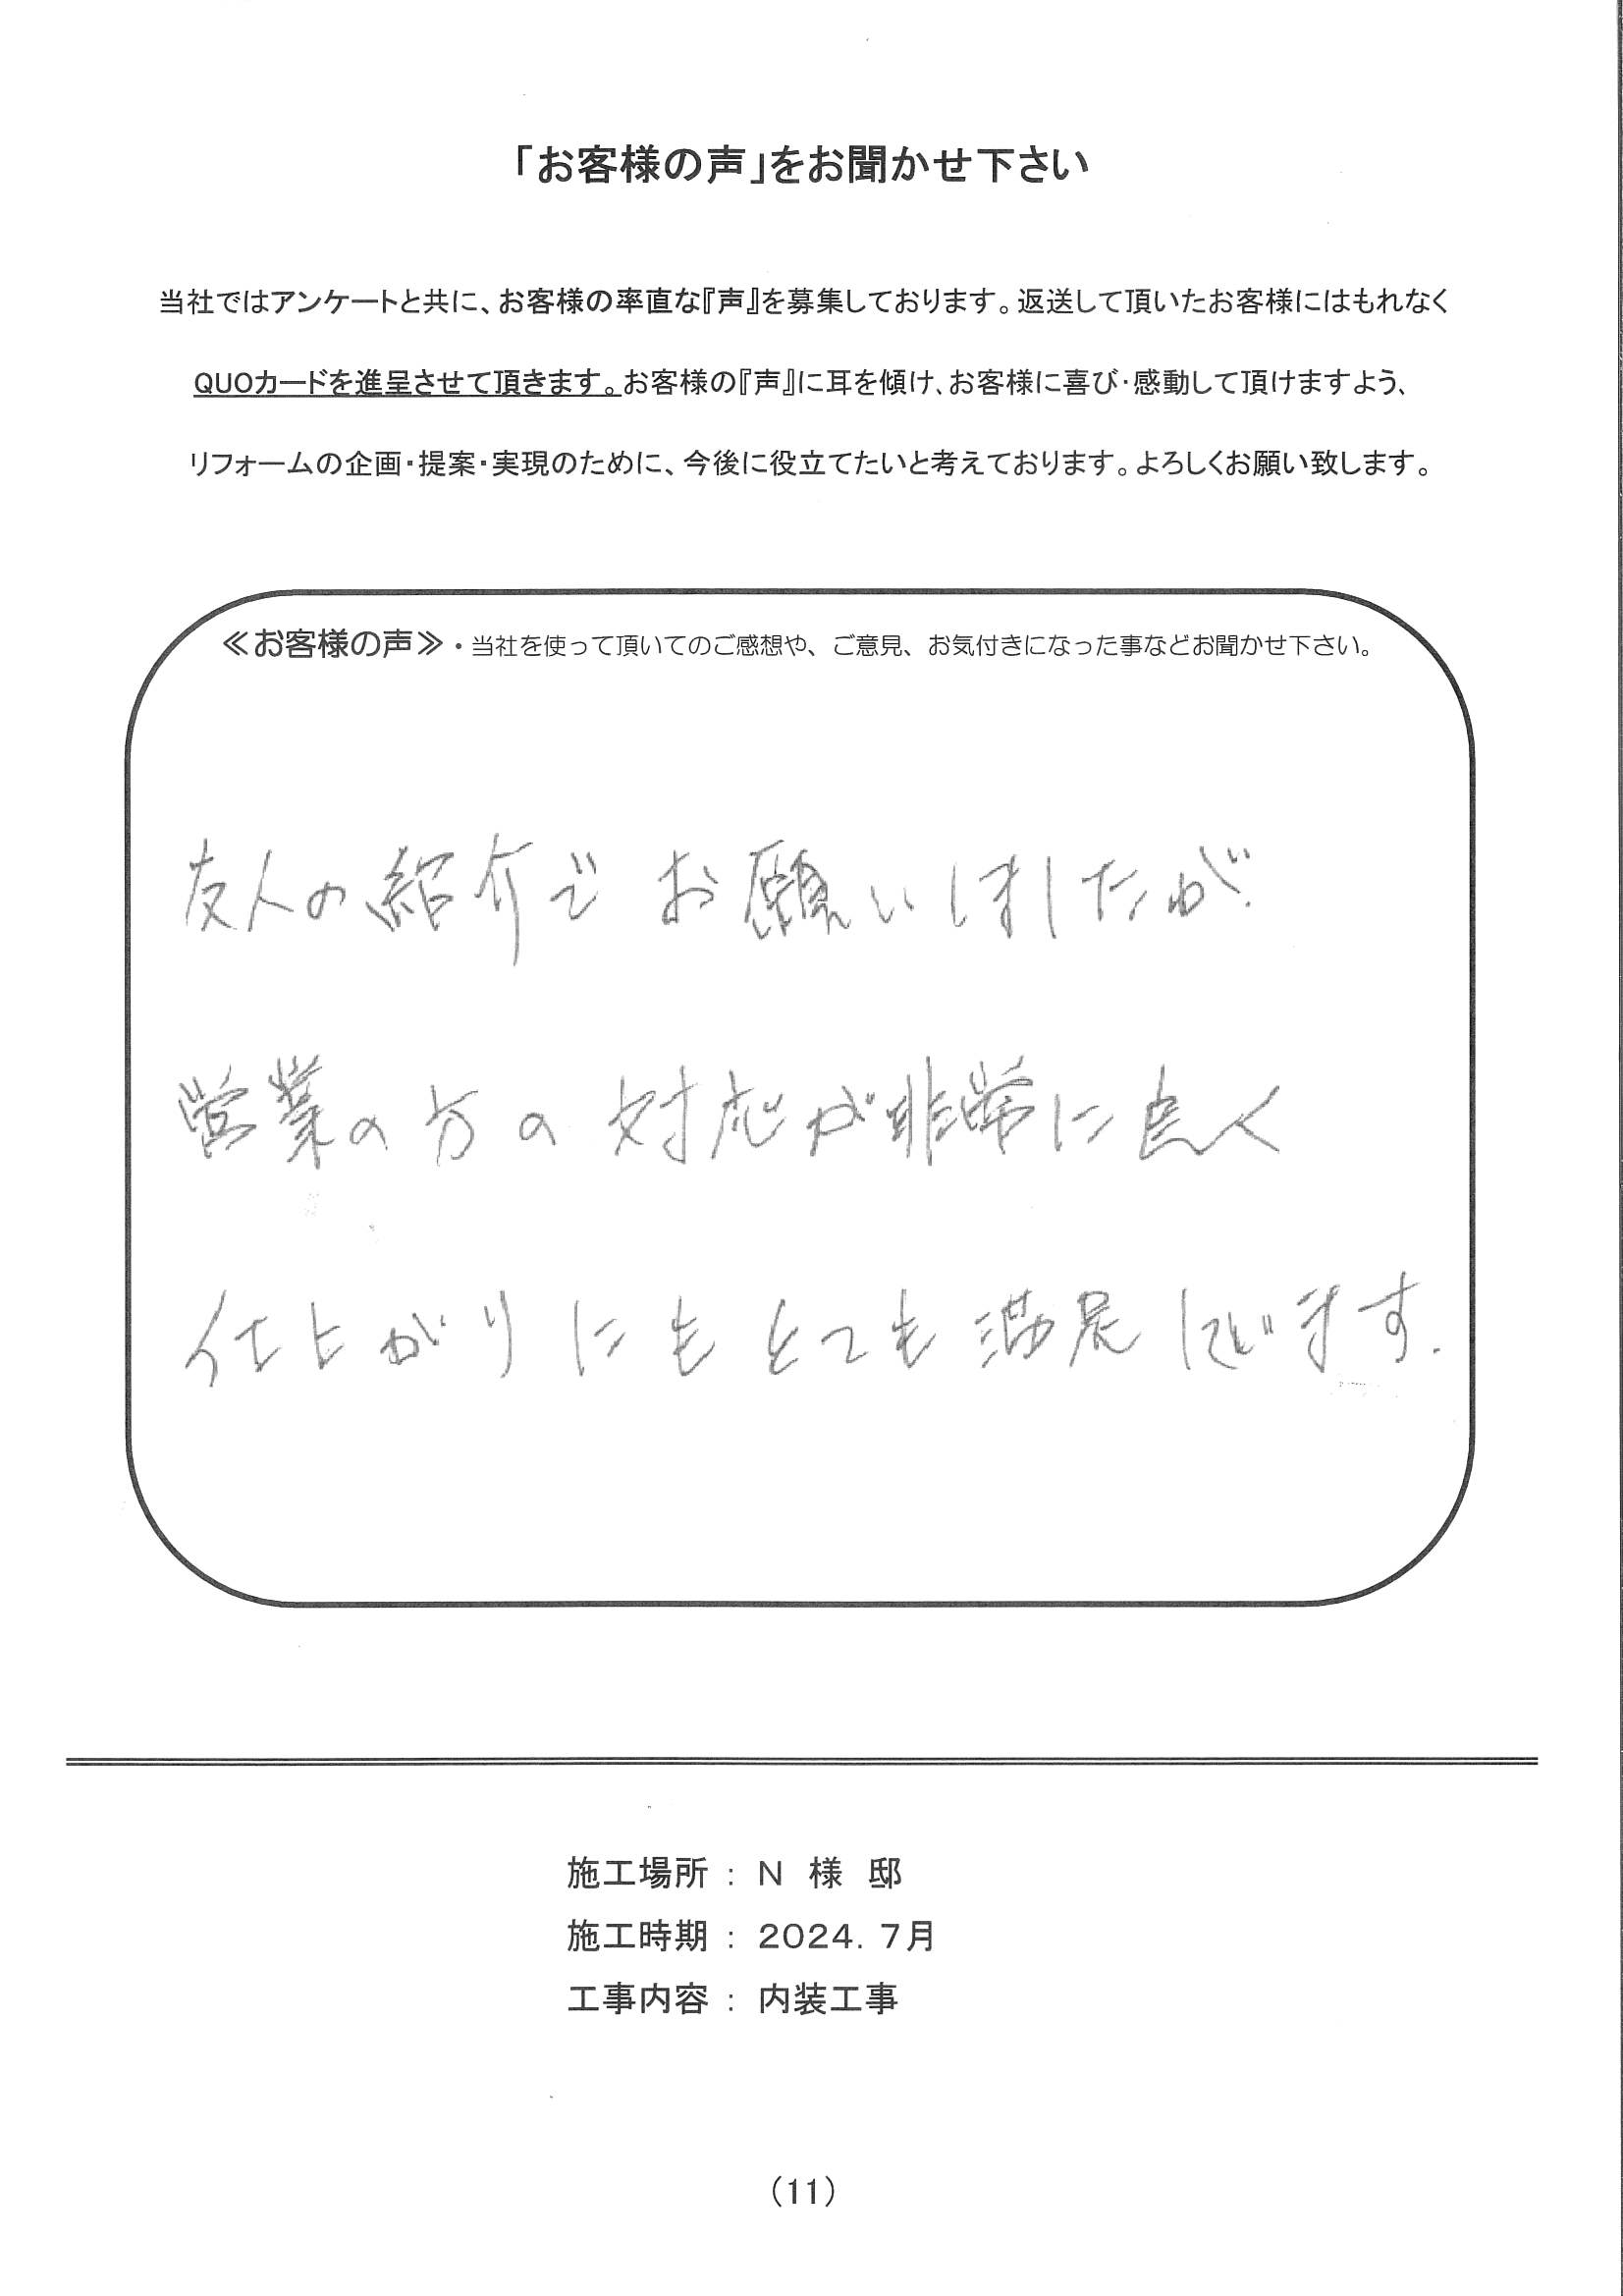 「お客様の声」をお聞かせ下さい
当社ではアンケートと共に、お客様の率直な『声』を募集しております。返送して頂いたお客様にはもれなく
QUOカードを進呈させて頂きます。お客様の『声』に耳を傾け、お客様に喜び・感動して頂けますよう、
リフォームの企画・提案・実現のために、今後に役立てたいと考えております。よろしくお願い致します。
≪お客様の声≫・当社を使って頂いてのご感想や、ご意見、お気付きになった事などお聞かせ下さい。
友人の紹介でお願いしましたが.
営業の方の対応が非常に良く
仕上がりにもとても満足しております.
施工場所 : N 様 邸
施工時期 : 2024. 7月
工事内容 : 内装工事
(11)